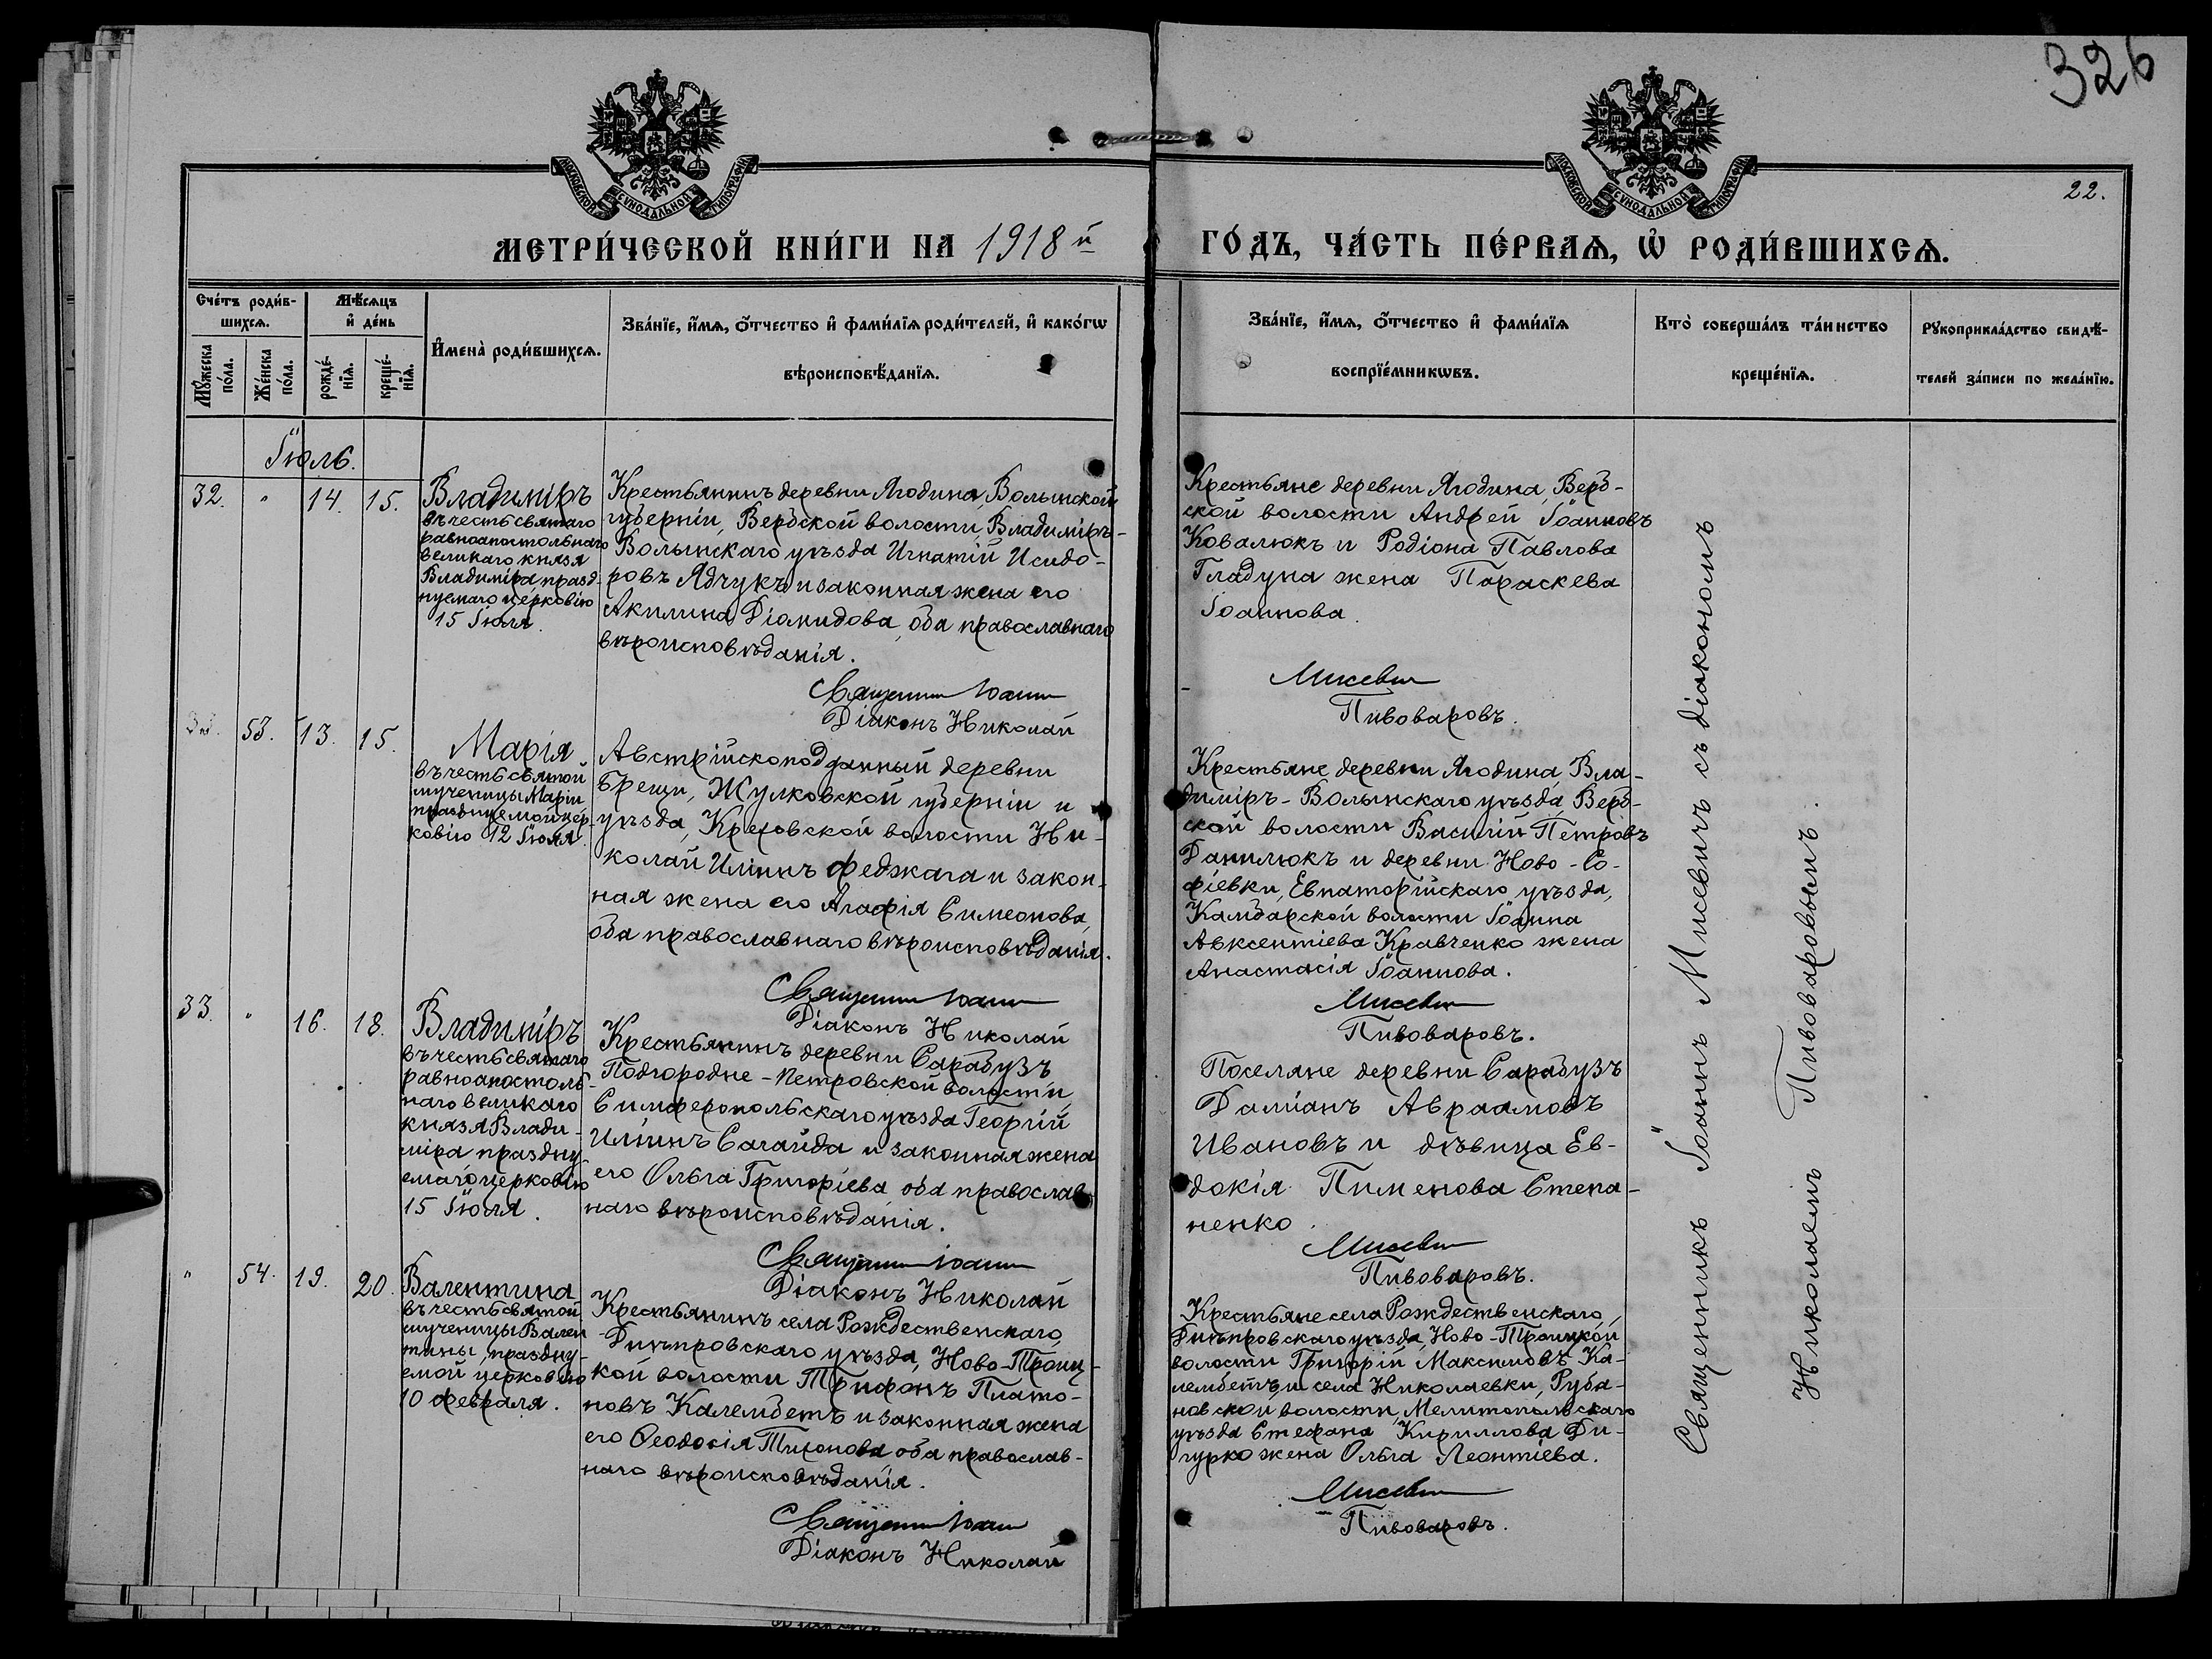 326
22.
МОСКОВСКОЙ СѴНОДАЛЬНОЙ ТИПОГРАФІИ
МОСКОВСКОЙ СѴНОДАЛЬНОЙ ТИПОГРАФІИ
МЕТРИ́ЧЕСКОЙ КНИ́ГИ НА 1918й ГО́ДЪ, ЧА́СТЬ ПЕ́РВАѦ, Ѡ҆ РОДИ́ВШИХСѦ.
Сче́тъ роди́в-
шихсѧ.
Мѣ́сѧцъ
и҆ де́нь
Мꙋ́жеска
по́ла.
Же́нска
по́ла.
рожде́-
нїѧ.
креще́-
нїѧ.
И҆мена̀ роди́вшихсѧ.
Зва́нїе, и҆́мѧ, ѻ҆́тчество и҆ фами́лїѧ роди́телей, и҆ како́гѡ
вѣроисповѣ́данїѧ.
Зва́нїе, и҆́мѧ, ѻ҆́тчество и҆ фами́лїѧ
воспрїе́мникѡвъ.
Кто̀ соверша́лъ та́инство
креще́нїѧ.
Рꙋкоприкла́дство свидѣ́-
телей за́писи по жела́нїю.
Іюль.
32. " 14. 15.
Владиміръ
въ честь святаго
равноапостольнаго
великаго князя
Владиміра празд-
нуемаго церковію
15 Іюля.
Крестьянинъ деревни Ягодина, Волынской
губерніи, Вербской волости, Владиміръ-
Волынскаго уѣзда Игнатій Исидо-
ровъ Ядчукъ и законная жена его
Акилина Діомидова, оба православнаго
вѣроисповѣданія.
Священникъ Іоаннъ
Діаконъ Николай
Крестьяне деревни Ягодина, Верб-
ской волости Андрей Іоанновъ
Ковалюкъ и Родіона Павлова
Гладуна жена Параскева
Іоаннова.
Мисевичъ
Пивоваровъ.
53. 13. 15.
Марія
въ честь святой
мученицы Маріи
празднуемой цер-
ковію 12 Іюля.
Австрійскоподданный деревни
Брещи, Жулковской губерніи и
уѣзда, Креховской волости Ни-
колай Иліинъ Феджага и закон-
ная жена его Агафія Симеонова,
оба православнаго вѣроисповѣданія.
Священникъ Іоаннъ
Діаконъ Николай
Крестьяне деревни Ягодина, Вла-
диміръ-Волынскаго уѣзда, Верб-
ской волости Василій Петровъ
Данилюкъ и деревни Ново-Со-
фіевки, Евпаторійскаго уѣзда,
Камбарской волости Іоанна
Авксентіева Кравченко жена
Анастасія Іоаннова.
Мисевичъ
Пивоваровъ.
33. " 16. 18.
Владиміръ
въ честь святаго
равноапостоль-
наго великаго
князя Влади-
міра праздну-
емаго церковію
15 Іюля.
Крестьянинъ деревни Сарабузъ
Подгородне-Петровской волости,
Симферопольскаго уѣзда Георгій
Иліинъ Сагайда и законная жена
его Ольга Григоріева, оба православ-
наго вѣроисповѣданія.
Священникъ Іоаннъ
Діаконъ Николай
Поселяне деревни Сарабузъ
Даміанъ Авраамовъ
Ивановъ и дѣвица Ев-
докія Пименова Степа-
ненко.
Мисевичъ
Пивоваровъ.
" 54. 19. 20.
Валентина
въ честь святой
мученицы Вален-
тины, праздну-
емой церковію
10 февраля.
Крестьянинъ села Рождественскаго,
Днѣпровскаго уѣзда, Ново-Троиц-
кой волости Трифонъ Плато-
новъ Калембетъ и законная жена
его Ѳеодосія Тихонова, оба православ-
наго вѣроисповѣданія.
Священникъ Іоаннъ
Діаконъ Николай
Крестьяне села Рождественскаго,
Днѣпровскаго уѣзда, Ново-Троицкой
волости Григорій Максимовъ Ка-
лембетъ и села Николаевки, Руба-
новской волости, Мелитопольскаго
уѣзда Стефана Кириллова Ди-
гурко жена Ольга Леонтіева.
Мисевичъ
Пивоваровъ.
Священникъ Іоаннъ Мисевичъ съ діакономъ
Николаемъ Пивоваровымъ.